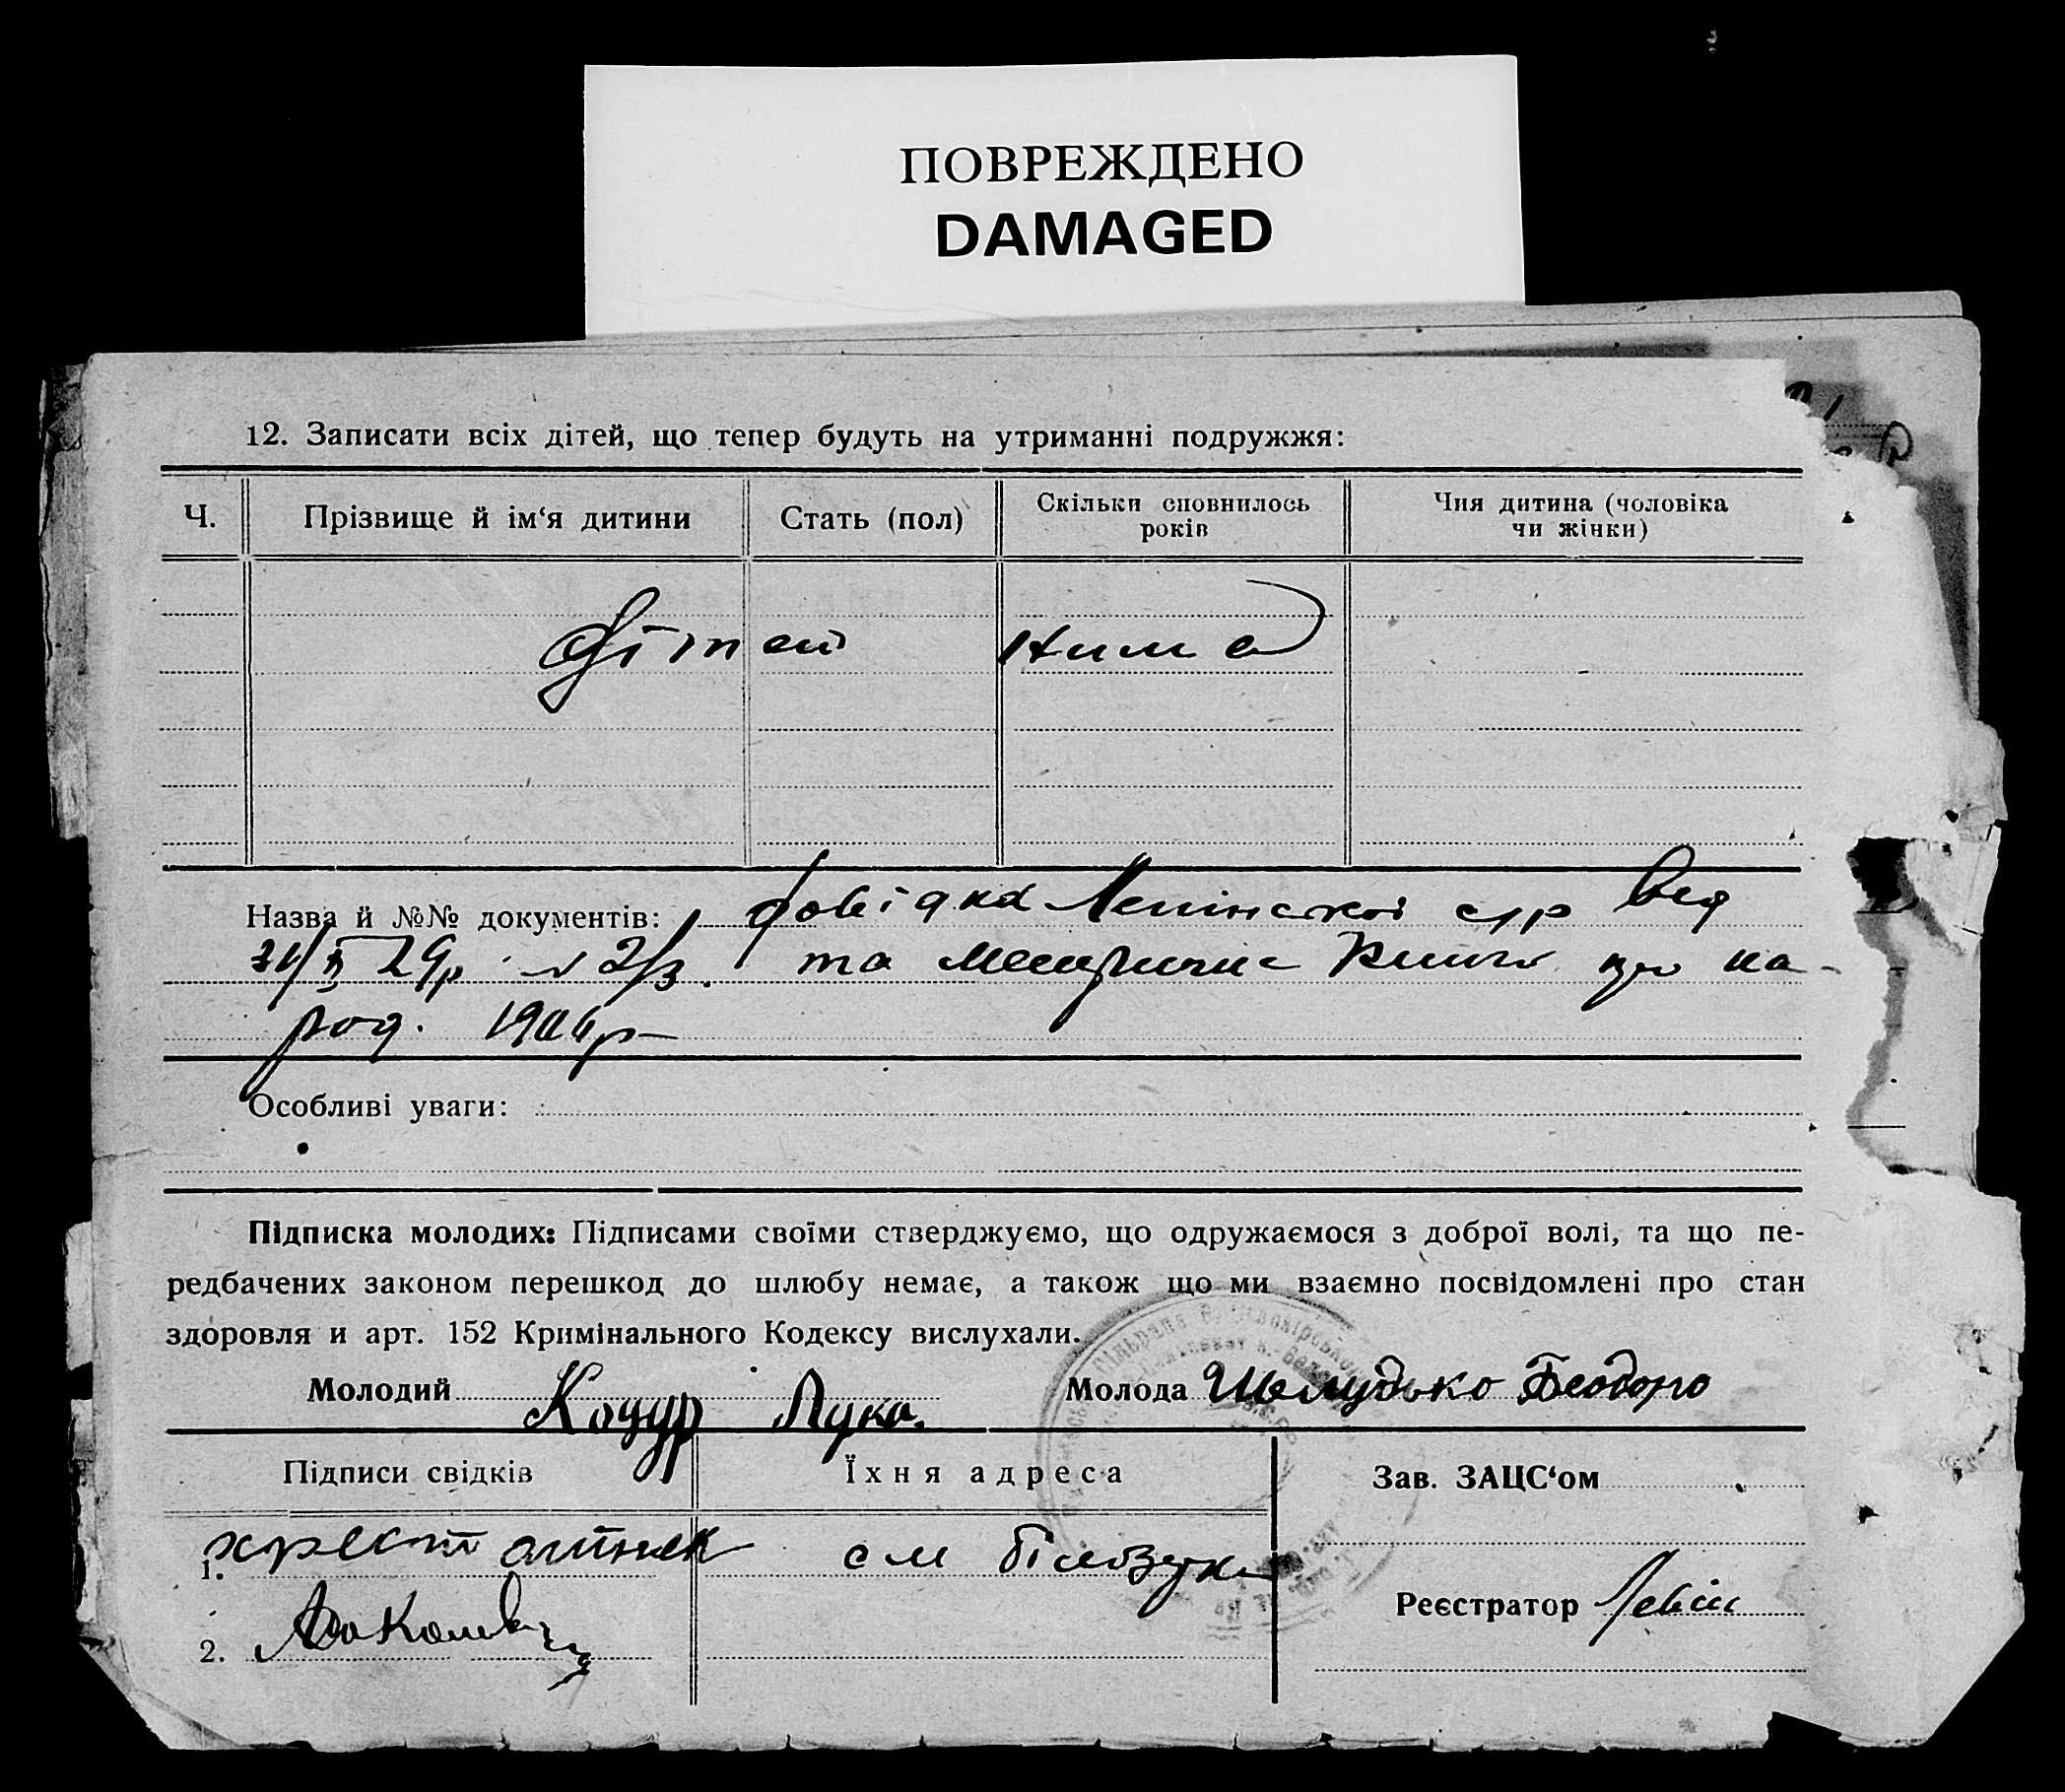 ПОВРЕЖДЕНО
DAMAGED
12. Записати всіх дітей, що тепер будуть на утриманні подружжя:
Ч. Прізвище й ім‘я дитини Стать (пол) Скільки сповнилось років Чия дитина (чоловіка чи жінки)
Дітей нима
Назва й №№ документів: Довідка Ленінської с/р від
29р. № 2/3. та метричні книги про на-
род. 1906р
Особливі уваги:
Підписка молодих: Підписами своїми стверджуємо, що одружаємося з доброї волі, та що пе-
редбачених законом перешкод до шлюбу немає, а також що ми взаємно посвідомлені про стан
здоровля и арт. 152 Кримінального Кодексу вислухали.
Молодий Коцур Лука. Молода Шелудько Феодора
Підписи свідків Їхня адреса Зав. ЗАЦС‘ом
1. см Білозерка
Реєстратор
2.